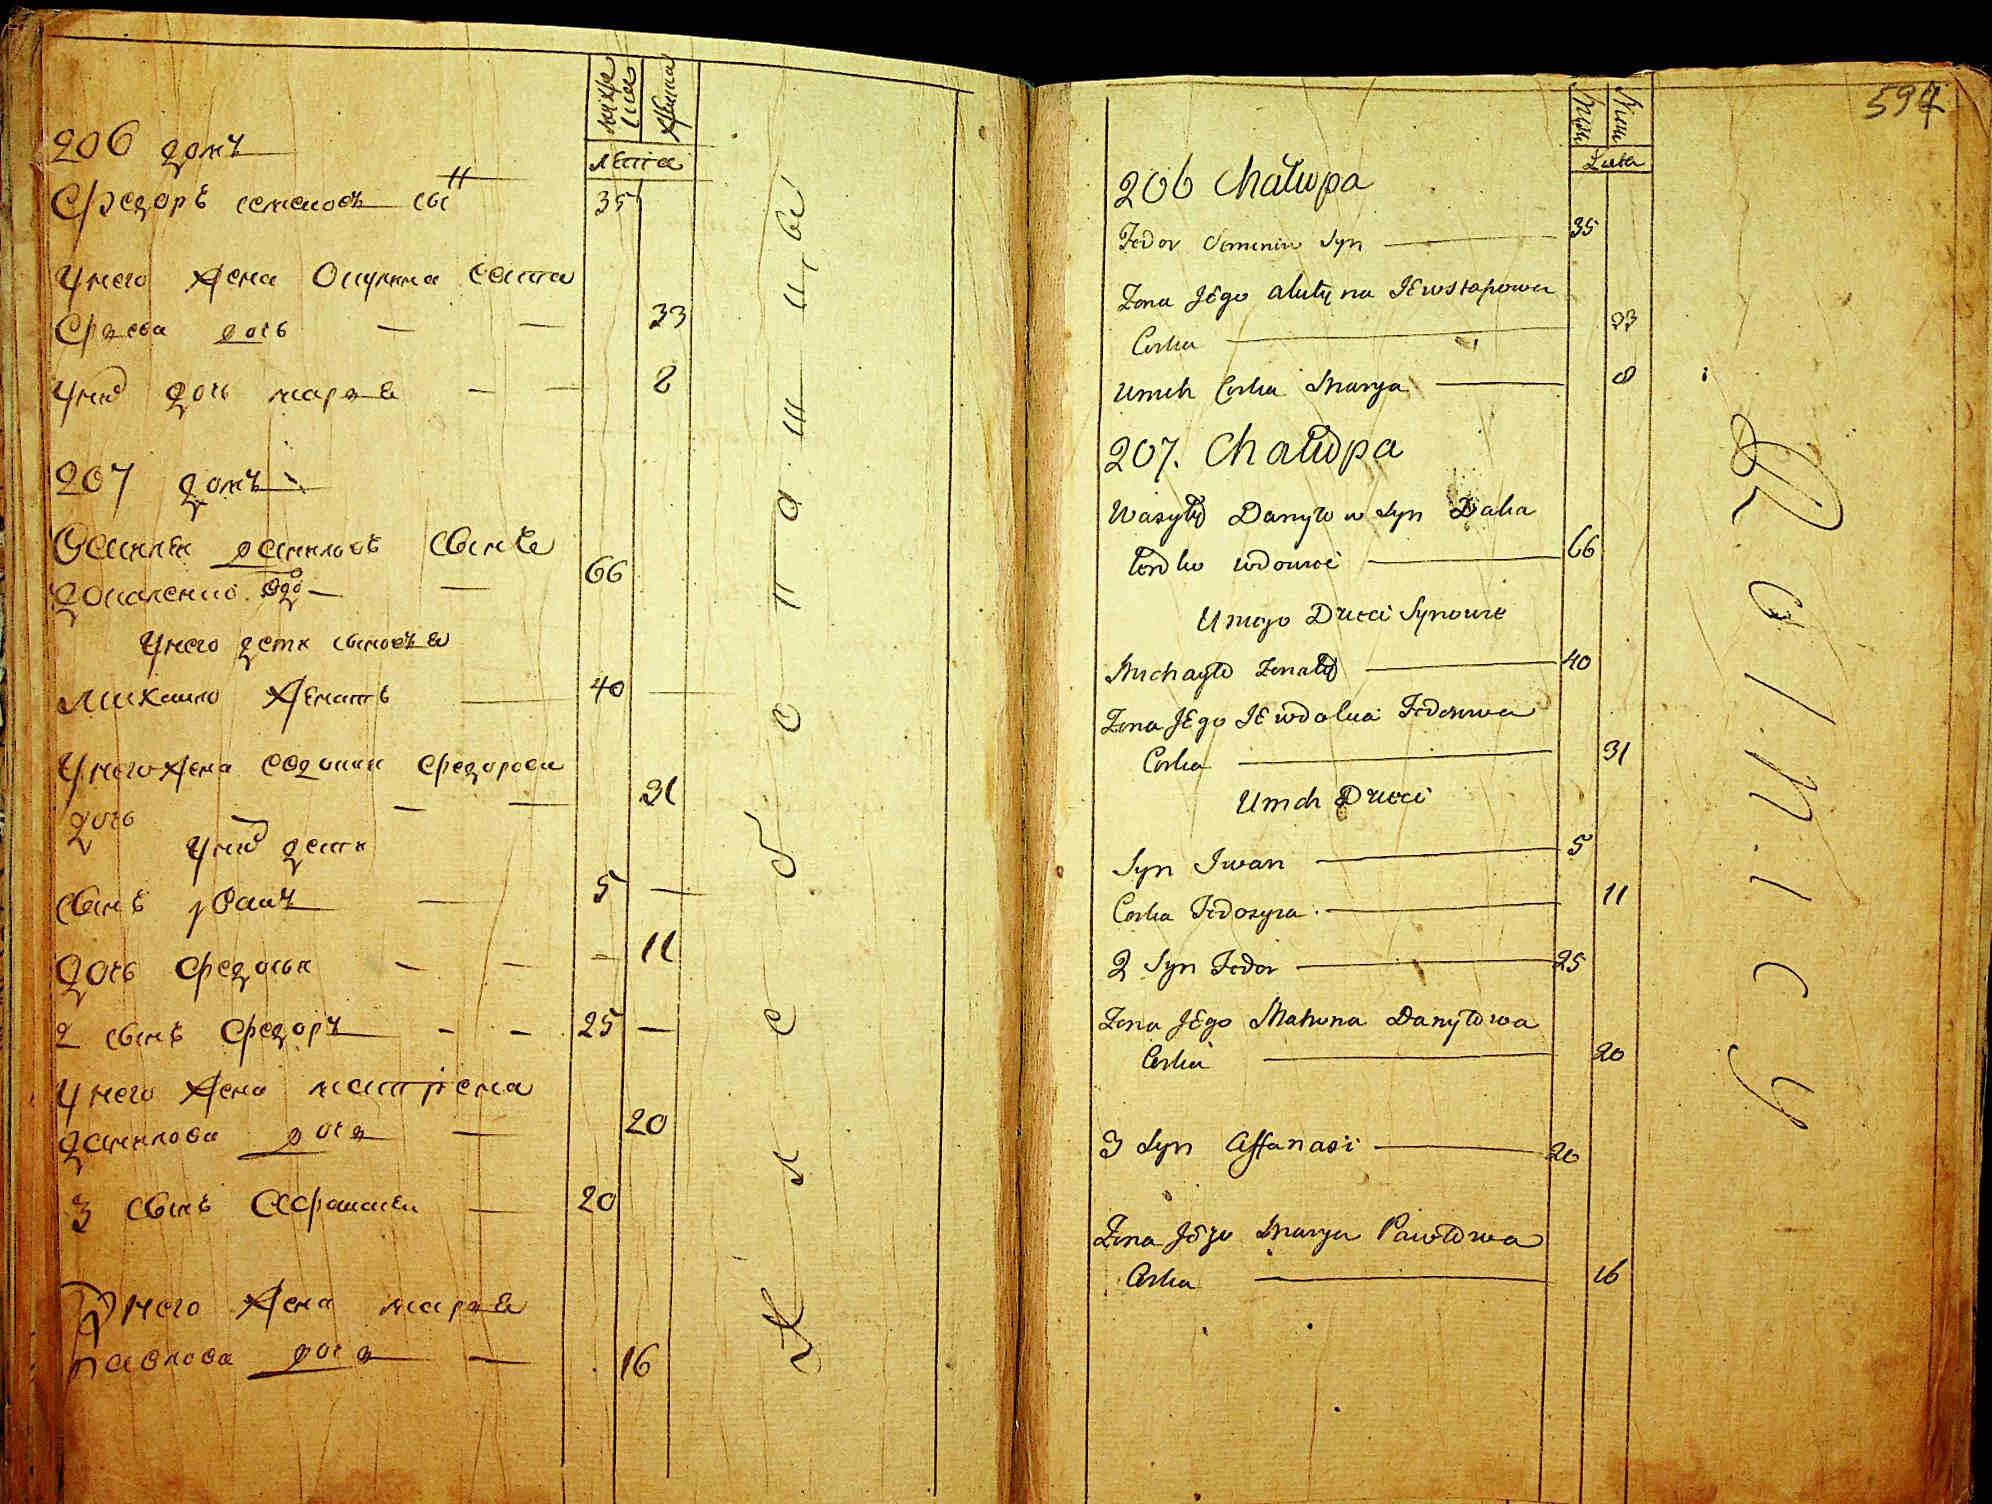 мужеска
женска
лета
206 домъ
Федоръ семеновъ сынъ 35
У него жена Окулина Еста
Фиева дочь — — 33
У них дочь мария — — 8
207 домъ
Василеи даниловъ сынъ
вдо — — 66
У него дети сыновья
Михаило женатъ — 40 —
У него жена Евдокия Федорова
дочь — — 31
У них дети
сынъ Иванъ — 5 —
Дочь Федосия — — — 11
2 сынъ Федоръ — — 25 —
У него жена матрена
данилова дочь — 20
3 сынъ Афанасеи — 20
У него жена мария
павлова дочь — 16
Хлебопашцы
594
Lata
206 Chałupa
Fedor Semeniw Syn 35
Zona Jego akulina Jewstapowa
Corka 33
Unich Corka Marya 8
207. Chałupa
Wasyly Danyłow Syn
wdowiec 66
Uniego Dzieci Synowie
Michayło Zonaty 40
Zona Jego Jewdokia Fedorowa
Corka 31
Unich Dzieci
Syn Iwan 5
Corka Fedosyia 11
2 Syn Fedor 25
Zona Jego Matrona Danyłowa
Corka 20
3 Syn Affanasi 20
Zona Jego Marya Pawłowa
Corka 16
Rolnicy